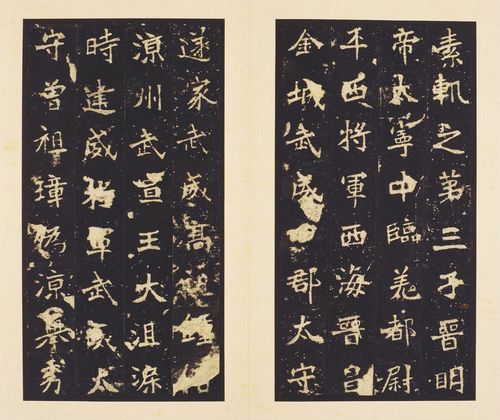 素軌之第三子晉明
帝大寧中臨羌都尉
平西將軍西海晉昌
金城武威郡太守
遂家武威高
涼州武宣王大沮渠
時建威將軍武威太
守曾祖璋偽涼舉秀